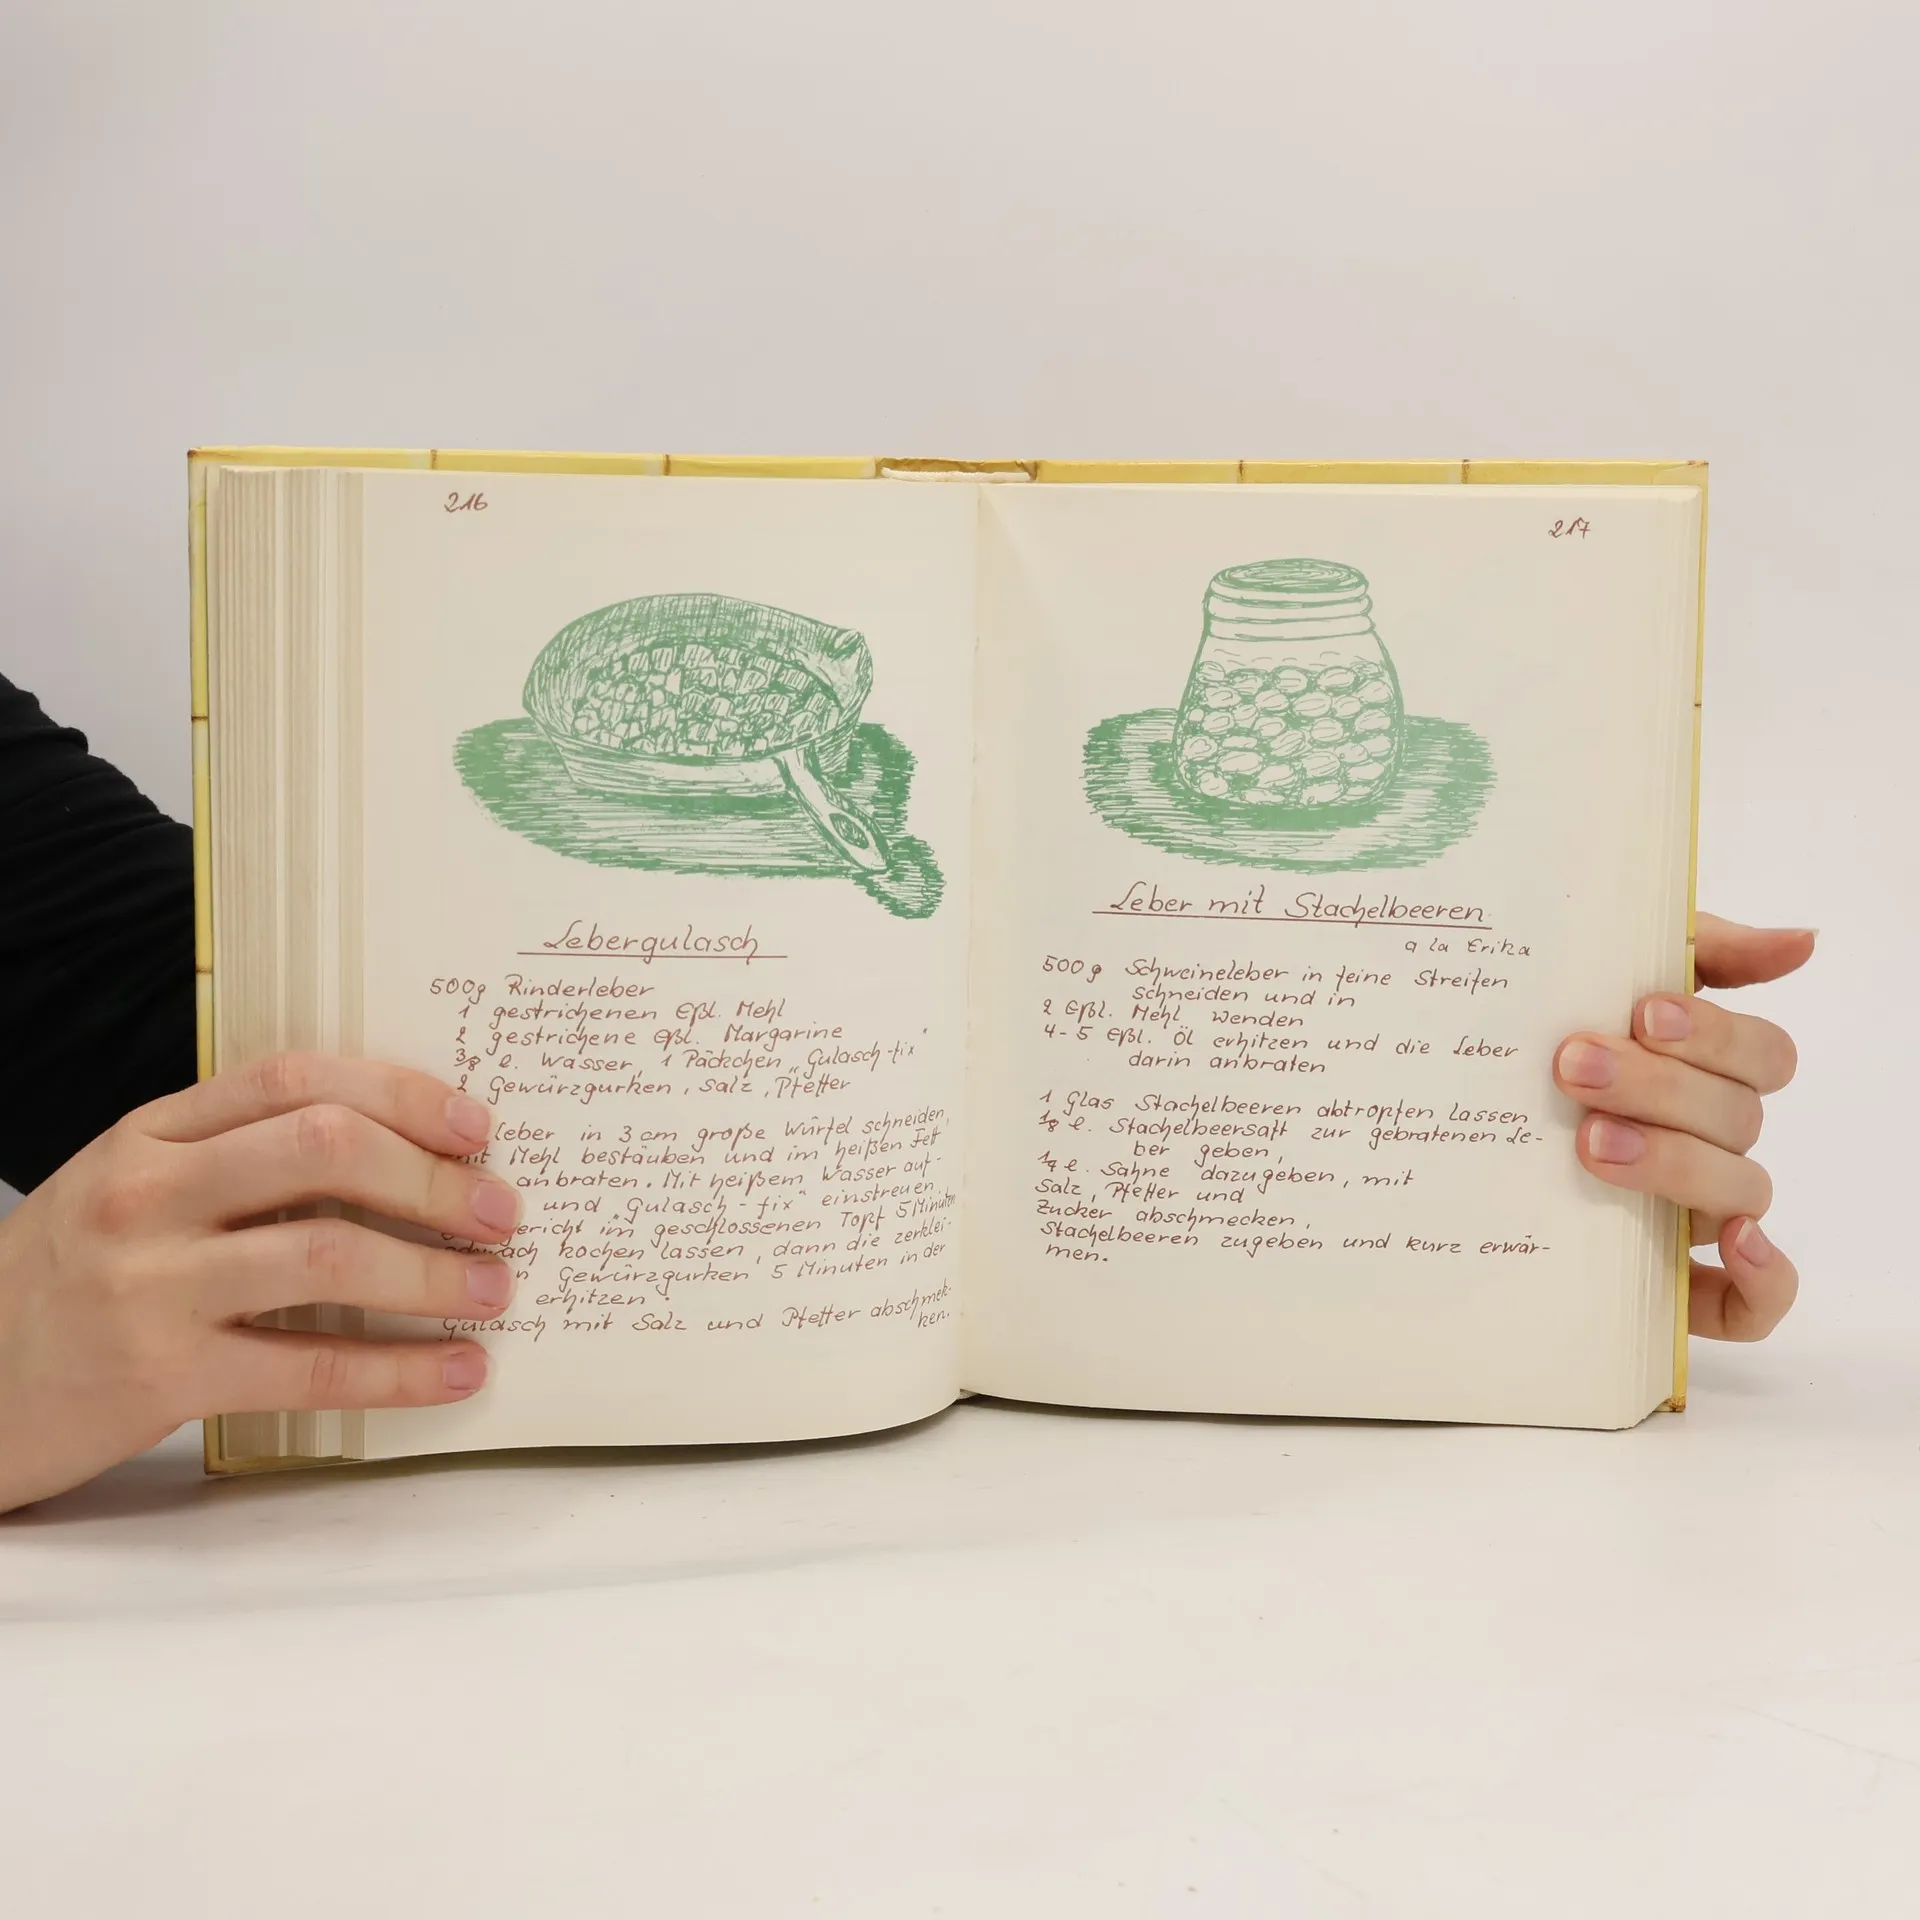 216
Lebergulasch
500g Rinderleber
1 gestrichenen Eßl. Mehl
2 gestrichene Eßl. Margarine
3/8 l. Wasser, 1 Päckchen „Gulasch-fix"
2 Gewürzgurken, Salz, Pfeffer
Leber in 3 cm große Würfel schneiden,
mit Mehl bestäuben und im heißen Fett
anbraten. Mit heißem Wasser auf-
und „Gulasch-fix" einstreuen.
gericht im geschlossenen Topf 5 Minuten
schwach kochen lassen, dann die zerklei-
Gewürzgurken 5 Minuten in der
erhitzen.
Gulasch mit Salz und Pfeffer abschmek-
ken.
217
Leber mit Stachelbeeren
a la Erika
500g Schweineleber in feine Streifen
schneiden und in
2 Eßl. Mehl wenden
4-5 Eßl. Öl erhitzen und die Leber
darin anbraten
1 Glas Stachelbeeren abtropfen lassen
1/8 l. Stachelbeersaft zur gebratenen Le-
ber geben,
1/4 l. Sahne dazugeben, mit
Salz, Pfeffer und
Zucker abschmecken,
Stachelbeeren zugeben und kurz erwär-
men.